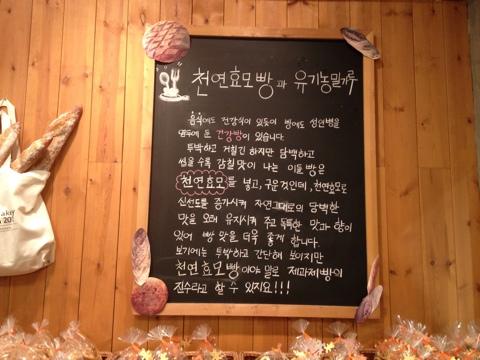 천연효모빵과 유기농밀가루
음식에도 건강식이 있듯이 빵에도 성인병을
염두에 둔 건강빵이 있습니다.
투박하고 거칠긴 하지만 담백하고
씹을 수록 감칠맛이 나는 이들 빵은
천연효모를 넣고, 구운 것인데, 천연효모로
신선도를 증가시켜 자연그대로의 담백한
맛을 오래 유지시켜 주고 독특한 맛과 향이
있어 빵 맛을 더욱 좋게 합니다.
보기에는 투박하고 간단해 보이지만
천연효모빵이야 말로 제과제빵의
진수라고 할 수 있지요!!!